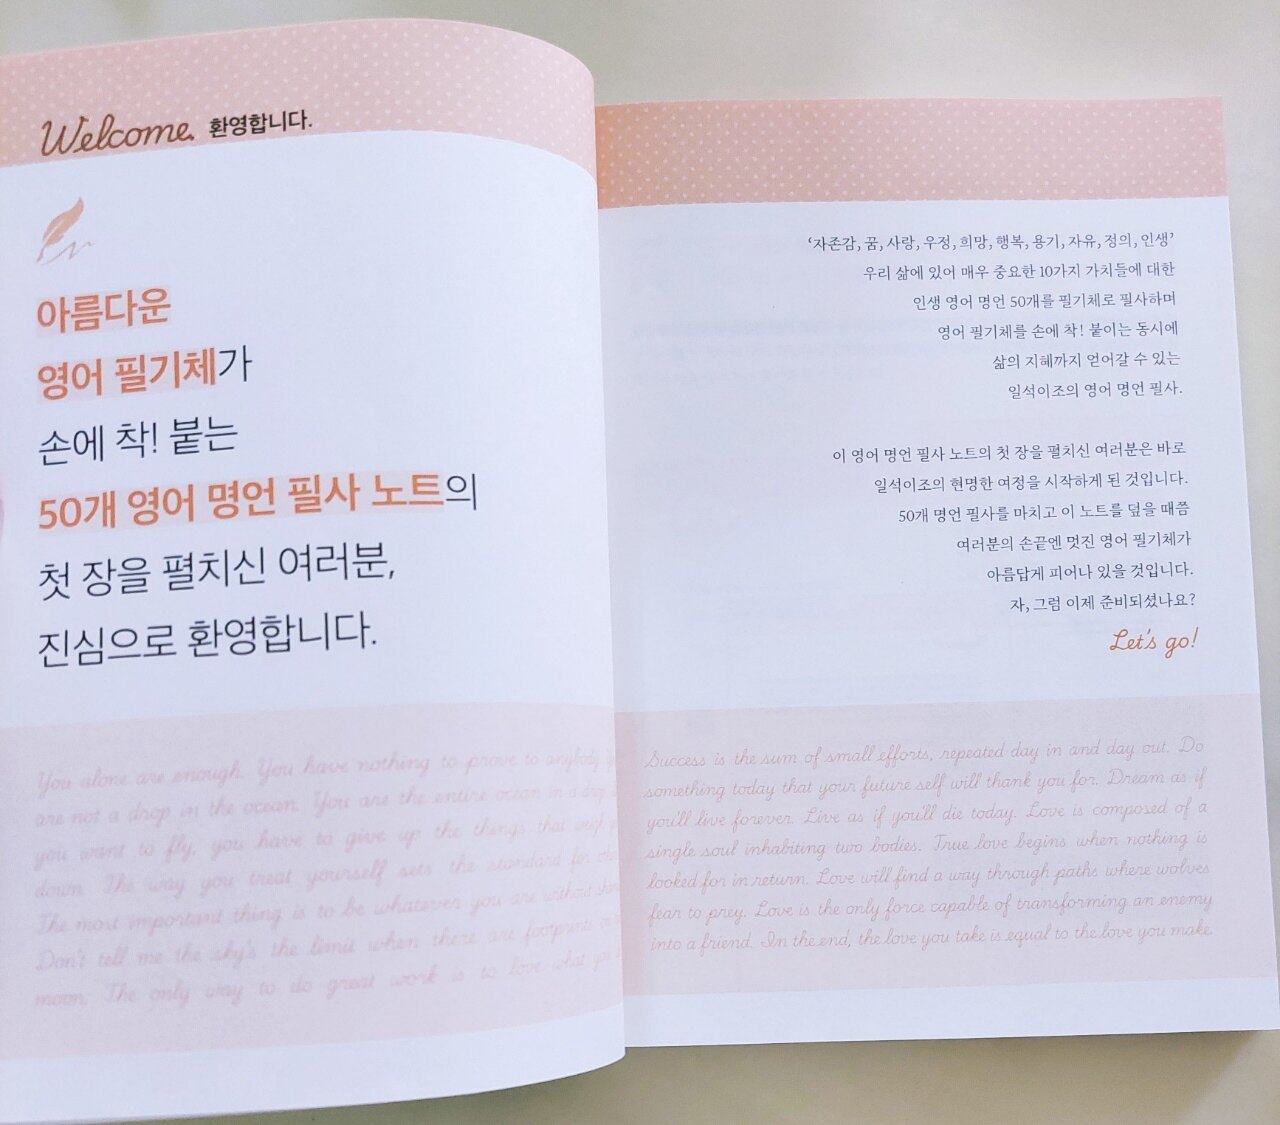 Welcome. 환영합니다.
아름다운
영어 필기체가
손에 착! 붙는
50개 영어 명언 필사 노트의
첫 장을 펼치신 여러분,
진심으로 환영합니다.
You alone are enough. You have nothing to prove to anybody.
are not a drop in the ocean. You are the entire ocean in a drop.
you want to fly, you have to give up the things that weigh
down. The way you treat yourself sets the standard for
The most important thing is to be whatever you are without
Don't tell me the sky's the limit when there are footprints on
moon. The only way to do great work is to love what you
'자존감, 꿈, 사랑, 우정, 희망, 행복, 용기, 자유, 정의, 인생'
우리 삶에 있어 매우 중요한 10가지 가치들에 대한
인생 영어 명언 50개를 필기체로 필사하며
영어 필기체를 손에 착! 붙이는 동시에
삶의 지혜까지 얻어갈 수 있는
일석이조의 영어 명언 필사.
이 영어 명언 필사 노트의 첫 장을 펼치신 여러분은 바로
일석이조의 현명한 여정을 시작하게 된 것입니다.
50개 명언 필사를 마치고 이 노트를 덮을 때쯤
여러분의 손끝엔 멋진 영어 필기체가
아름답게 피어나 있을 것입니다.
자, 그럼 이제 준비되셨나요?
Let's go!
Success is the sum of small efforts, repeated day in and day out. Do
something today that your future self will thank you for. Dream as if
you'll live forever. Live as if you'll die today. Love is composed of a
single soul inhabiting two bodies. True love begins when nothing is
looked for in return. Love will find a way through paths where wolves
fear to prey. Love is the only force capable of transforming an enemy
into a friend. In the end, the love you take is equal to the love you make.